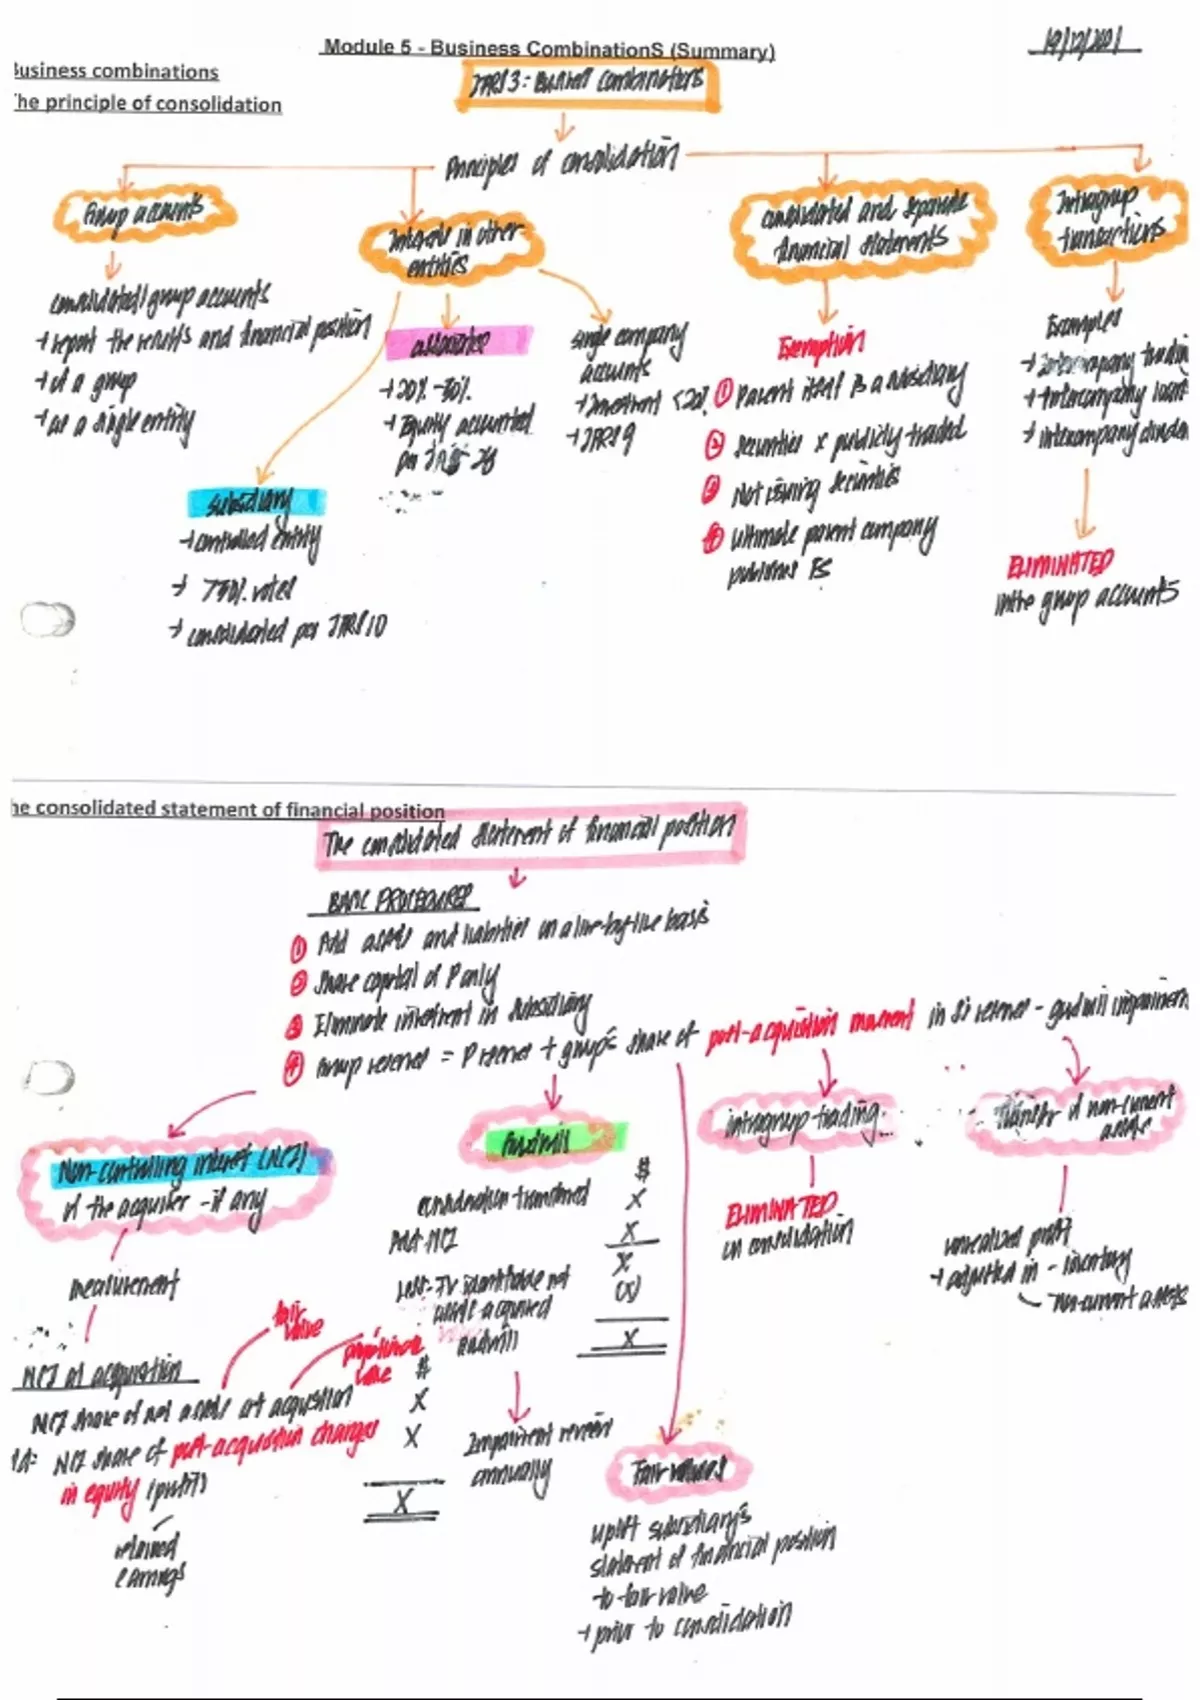 Module 5 - Business CombinationS (Summary)
19/12/2021
Business combinations
The principle of consolidation
IFRS 3: Business combinations
Principles of consolidation
Group accounts
consolidated/group accounts
→ report the results and financial position
→ of a group
→ as a single entity
Interests in other
entities
subsidiary
→ controlled entity
→ >50% votes
→ consolidated per IFRS 10
associates
→ 20% - 50%
→ Equity accounted
per IAS 28
single company
accounts
→ Investment <20%
→ IFRS 9
consolidated and separate
financial statements
Exemption
① Parent itself is a subsidiary
② securities x publicly traded
③ Not issuing securities
④ ultimate parent company
publishes FS
Intragroup
transactions
Examples
→ Intercompany trading
→ Intercompany loans
→ intercompany dividen
ELIMINATED
in the group accounts
he consolidated statement of financial position
The consolidated statement of financial position
BASIC PROCEDURES
① Add assets and liabilities on a line-by-line basis
② Share capital of P only
③ Eliminate investment in subsidiary
④ Group reserves = P reserves + group's share of post-acquisition movement in S's reserves - goodwill impairment
Non-controlling interest (NCI)
of the acquiree - if any
measurement
fair
value
proportionate
NCI at acquisition
$
NCI share of net assets at acquisition X
Add: NCI share of post-acquisition changes X
in equity (profit)
X
retained
earnings
Goodwill
$
consideration transferred X
Add: NCI X
X
Less: FV identifiable net (X)
assets acquired
Goodwill X
Impairment review
annually
Fair values
uplift subsidiary's
statement of financial position
to fair value
→ prior to consolidation
intragroup trading
ELIMINATED
on consolidation
Transfer of non-current
assets
unrealized profit
→ adjusted in - inventory
- non-current assets